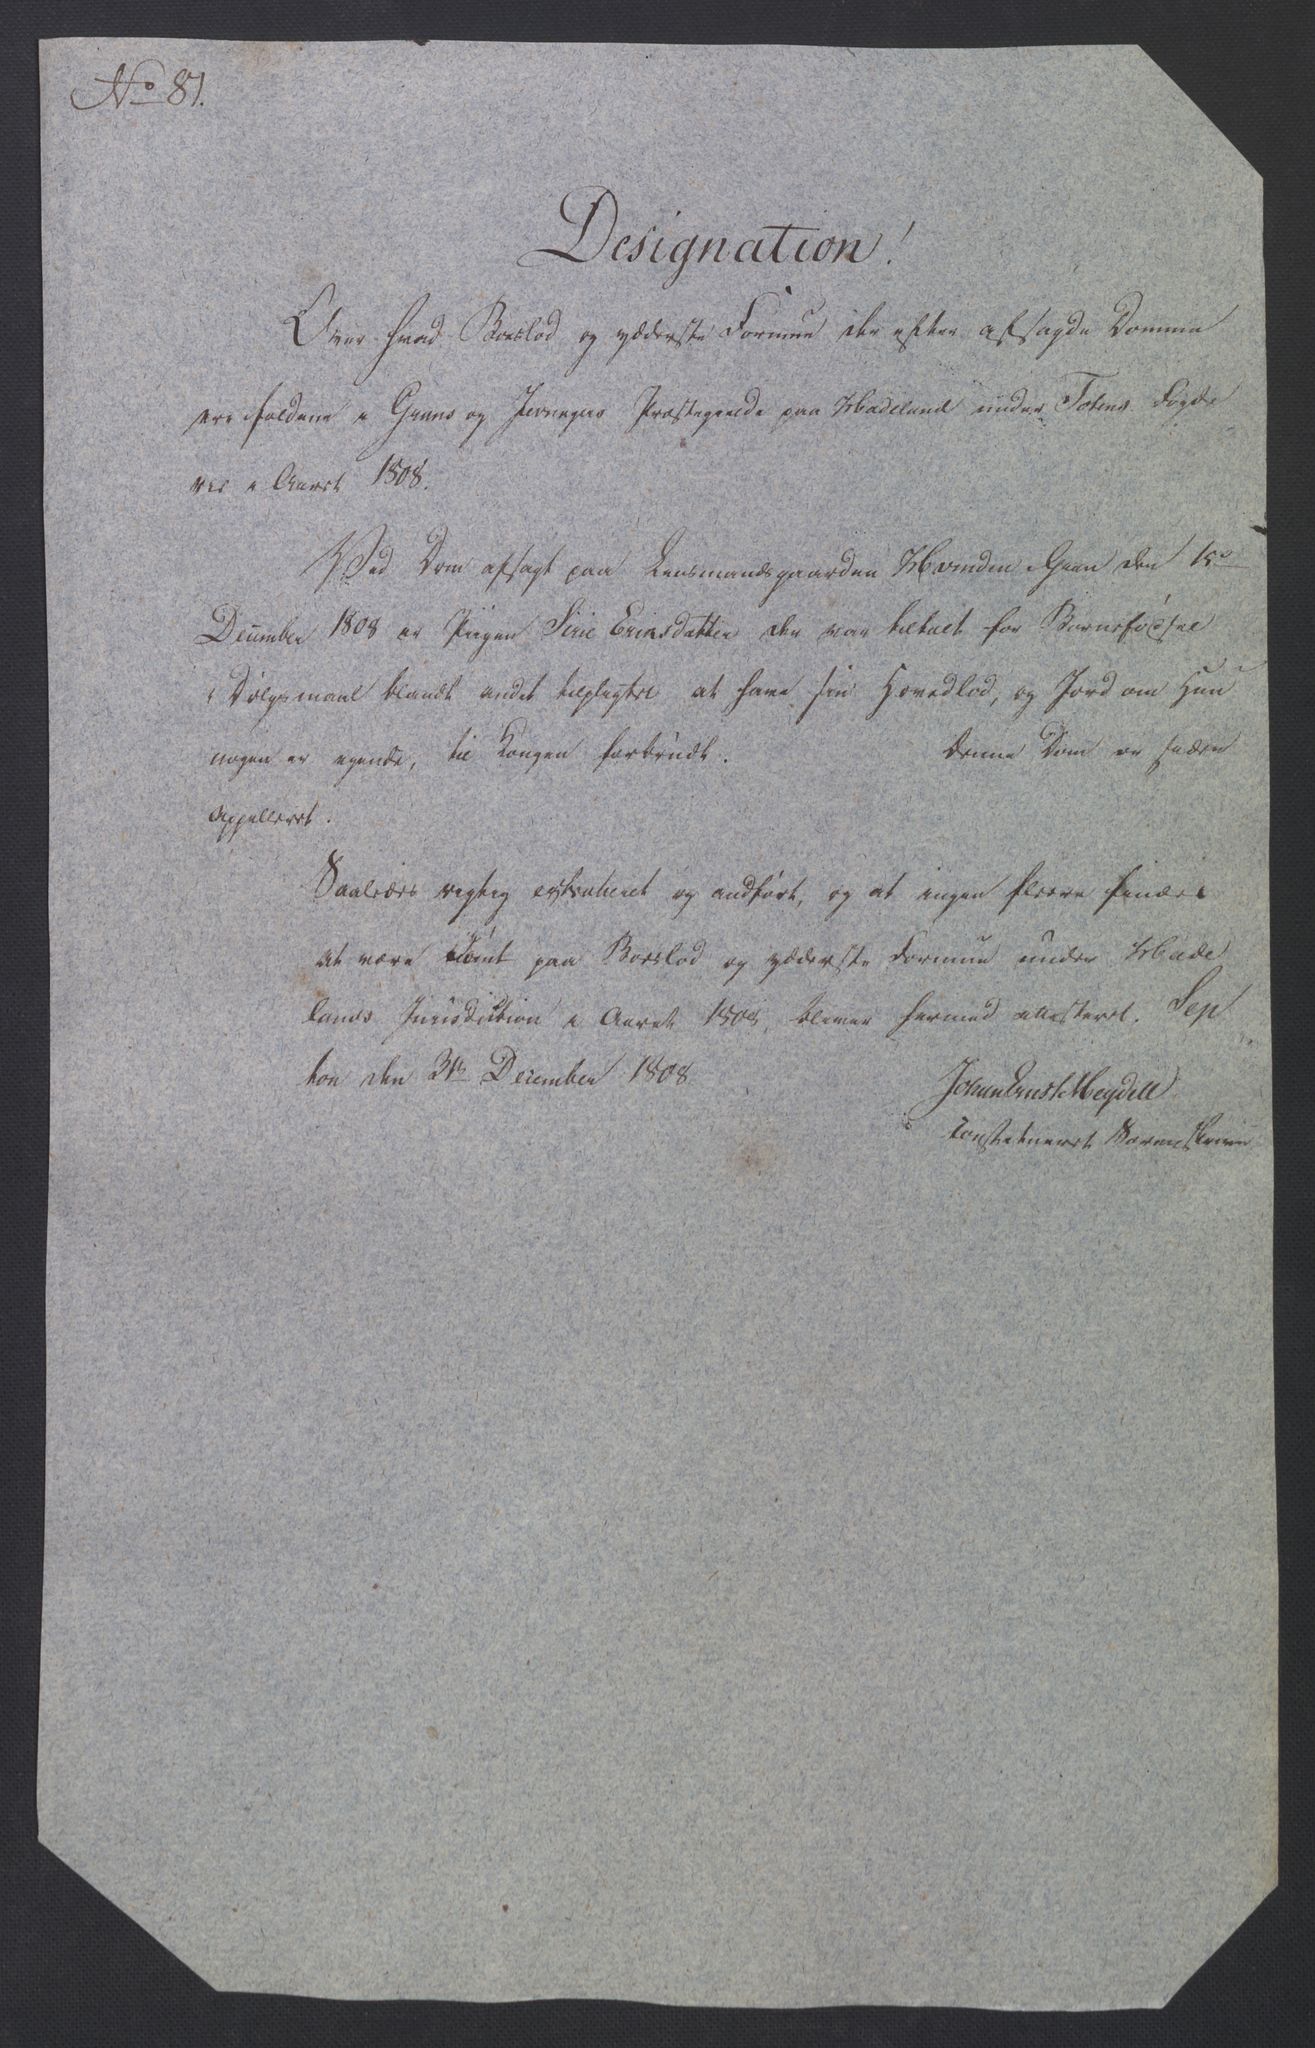 No 81.
Designation!
Over hvad Boeslod og yderste Formue der efter afsagde Domme
ere faldene i Grans og Jevnagers Præstegielde paa Hadeland under Totens Fogde
rie i Aaret 1808.
Ved Dom afsagt paa Lensmandsgaarden Hvinden i Gran den 15de
December 1808 er Pigen Sirie Erichsdatter der var tiltalt for Barnefødsel
i Dølgsmaal blandt andet tilpligtet at have sin Hovedlod, og Jord om Hun
nogen er eyende, til Kongen forbrudt. Denne Dom er siden
Appelleret.
Saaledes rigtig extraheret og andført, og at ingen fleere findes
at være dømt paa Boeslod og yderste Formue under Hade
lands Jurisdiction i Aaret 1808, bliver hermed attesteret. Sep
ton den 31te December 1808
Johan Ernst Meydell
Constitueret Sorenskriver